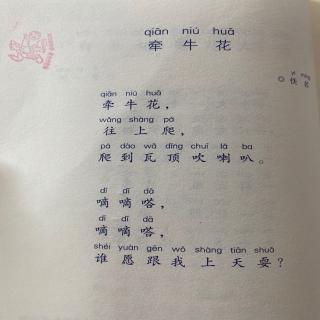 qiān niú huā
牵 牛 花
yì míng
◎ 佚 名
qiān niú huā
牵 牛 花，
wǎng shàng pá
往 上 爬，
pá dào wǎ dǐng chuī lǎ ba
爬 到 瓦 顶 吹 喇 叭。
dī dī dā
嘀 嘀 嗒，
dī dī dā
嘀 嘀 嗒，
shéi yuàn gēn wǒ shàng tiān shuǎ
谁 愿 跟 我 上 天 耍？